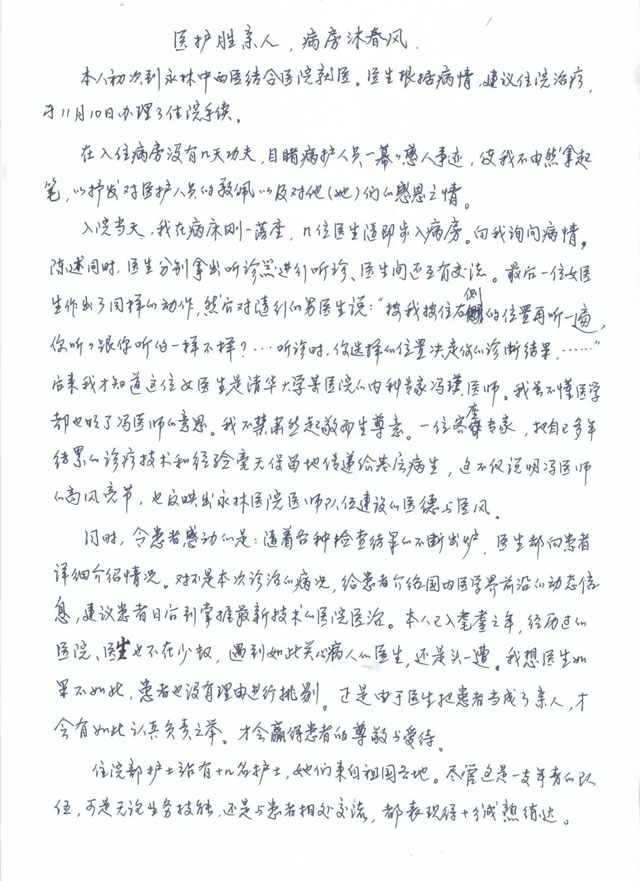 医护胜亲人，病房沐春风.
本人初次到永林中西医结合医院就医。医生根据病情，建议住院治疗，
于11月10日办理了住院手续。
在入住病房没有几天功夫，目睹病护人员一幕幕感人事迹，使我不由然拿起
笔，以抒发对医护人员的敬佩以及对他(她)们的感恩之情。
入院当天，我在病床刚一落座，几位医生随即步入病房。向我询问病情。
陈述同时，医生分别拿出听诊器进行听诊、医生间还互有交流。最后一位女医
生作出了同样的动作，然后对随行的男医生说："按我按住右侧的位置再听一遍，
你听听跟你听的一样不一样？…听诊时，你选择的位置决定你的诊断结果，……"
后来我才知道这位女医生是清华大学某医院的内科专家冯瑾医师。我虽不懂医学
却也明了冯医师的意思。我不禁肃然起敬而生尊意。一位客座专家，把自己多年
结累的诊疗技术和经验毫无保留地传递给基层病生，这不仅说明冯医师
的高风亮节，也反映出永林医院医师队伍建设的医德与医风。
同时，令患者感动的是：随着各种检查结果的不断出炉，医生都向患者
详细介绍情况。对不是本次诊治的病况，给患者介绍国内医学界前沿的动态信
息，建议患者日后到掌握最新技术的医院医治。本人已入耄耋之年，经历过的
医院、医生也不在少数，遇到如此关心病人的医生，还是头一遭。我想医生如
果不如此，患者也没有理由进行挑剔。正是由于医生把患者当成了亲人，才
会有如此认真负责之举。才会赢得患者的尊敬与爱待。
住院部护士站有十几名护士，她们来自祖国各地。尽管这是一支年青的队
伍，可是无论业务技能，还是与患者相处交流，都表现得十分诚熟练达。